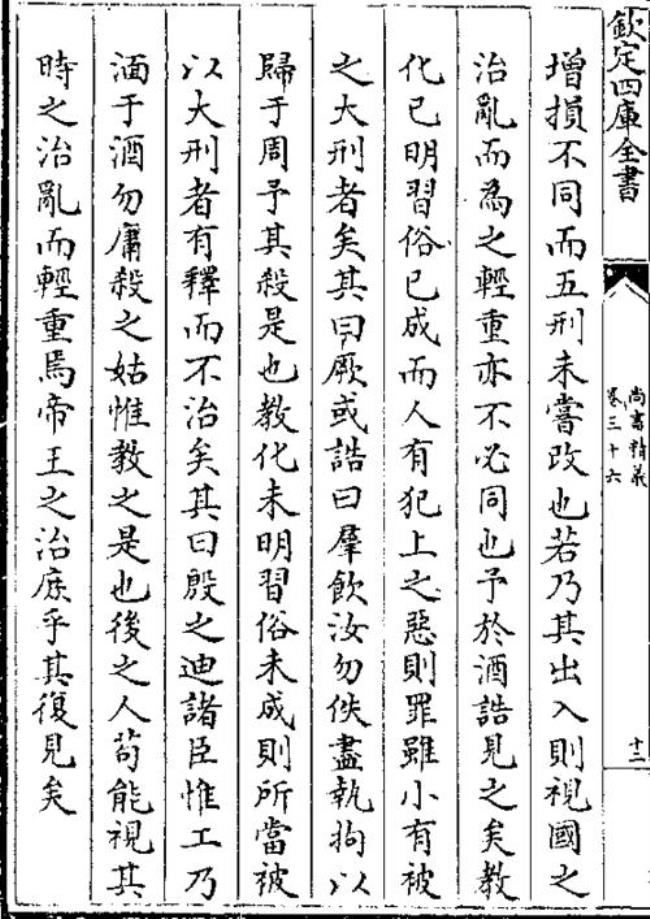 欽定四庫全書
尚書精義
卷三十六
十二
增損不同而五刑未嘗改也若乃其出入則視國之
治亂而為之輕重亦不必同也予於酒誥見之矣教
化已明習俗已成而人有犯上之惡則罪雖小有被
之大刑者矣其曰厥或誥曰羣飲汝勿佚盡執拘以
歸于周予其殺是也教化未明習俗未成則所當被
以大刑者有釋而不治矣其曰殷之迪諸臣惟工乃
湎于酒勿庸殺之姑惟教之是也後之人苟能視其
時之治亂而輕重焉帝王之治庶乎其復見矣